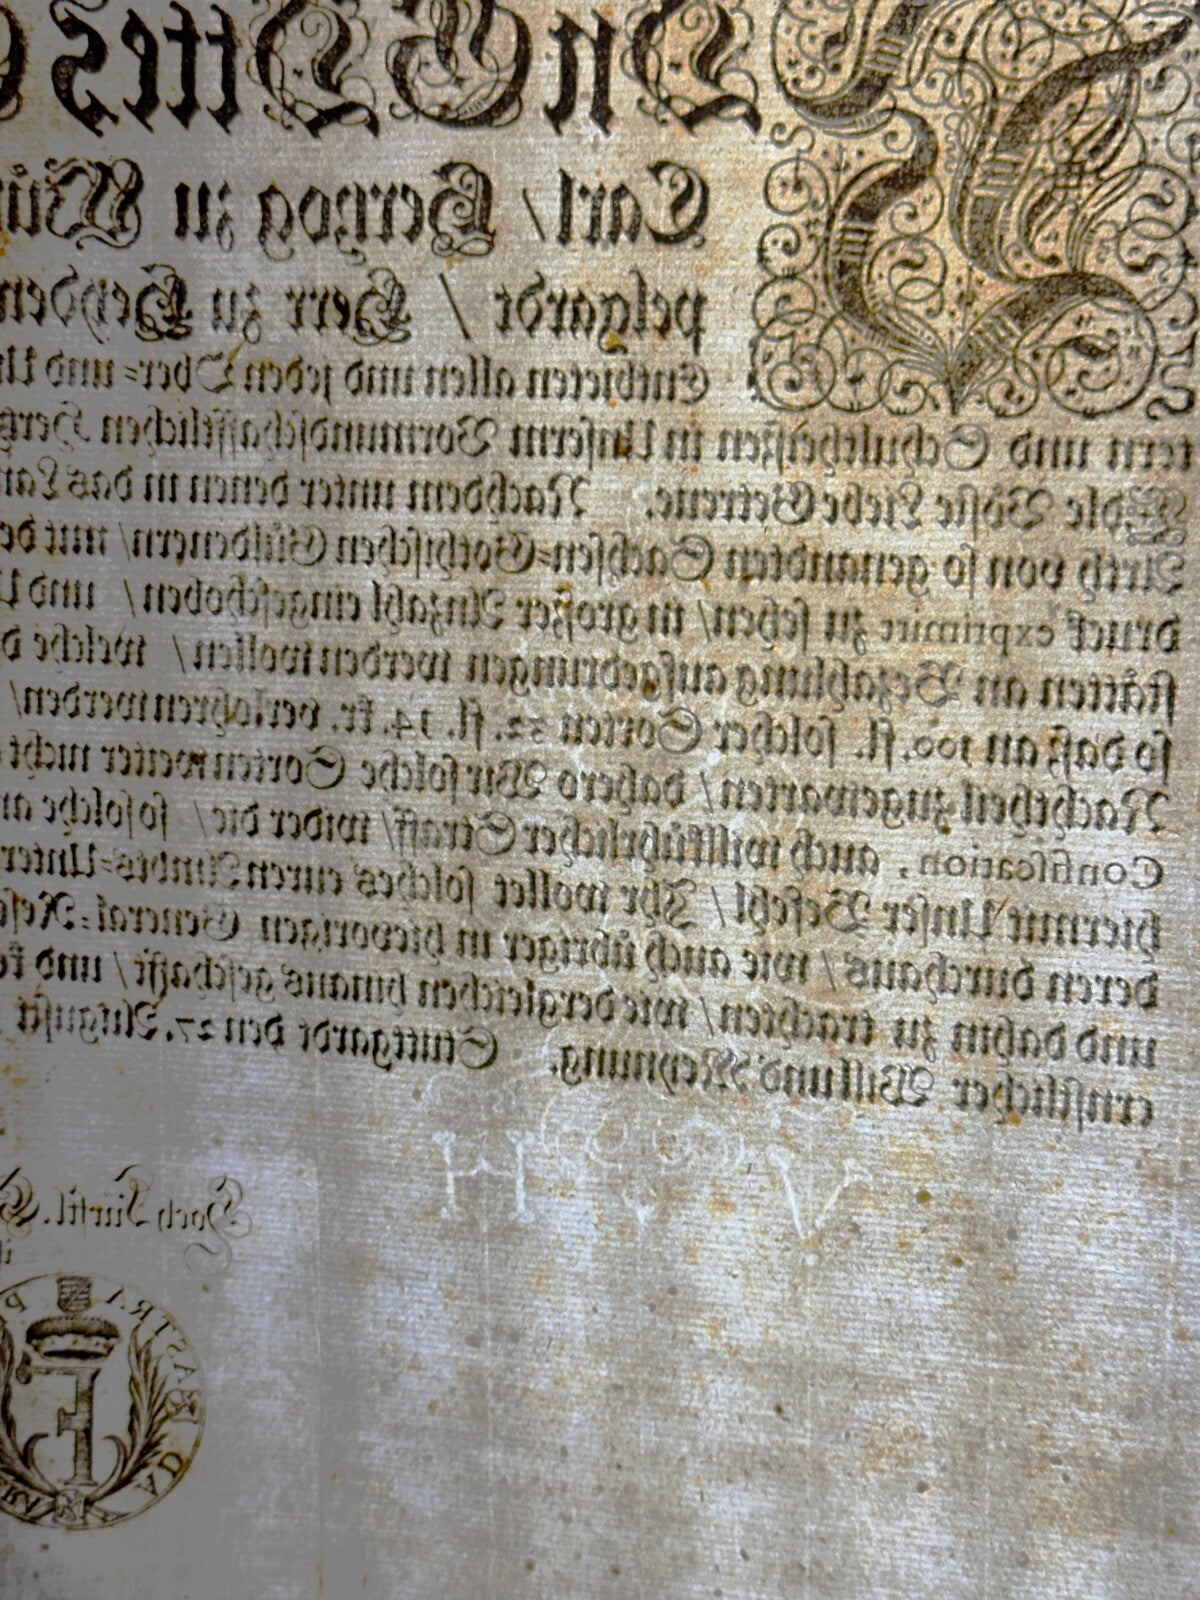 Von GOttes G
Carl / Hertzog zu Wür
pelgardt / Herr zu Heyden
Entbieten allen und jeden Ober- und U
tern und Schultheißen in Unserm Vormundschafftlichen Hertz
Edle Veste Liebe Getreue. Nachdem unter denen in das Lan
Arth von so genandten Sachsen-Gothischen Güldenern / mit de
druck exprimirt zu sehen / in großer Anzahl eingeschoben / und U
stätten an Bezahlung aufgedrungen werden wollen / welche d
so daß an 100. fl. solcher Sorten 32. fl. 14. kr. verlohren werden /
Nachtheil zugewarten / dahero Wir solche Sorten weiter nicht
Confiscation, auch willkührlicher Straff / wider die / so solche a
hiermit Unser Befehl / Ihr wollet solches euren Ambts-Unter
deren durchaus / wie auch übriger in hievorigen General-Resc
und dahin zu trachten / wie dergleichen hinaus geschafft / und
ernstlicher Will und Meynung. Stuttgardt den 27. Augusti
H V
Hoch Fürstl.
AD ASTRA P